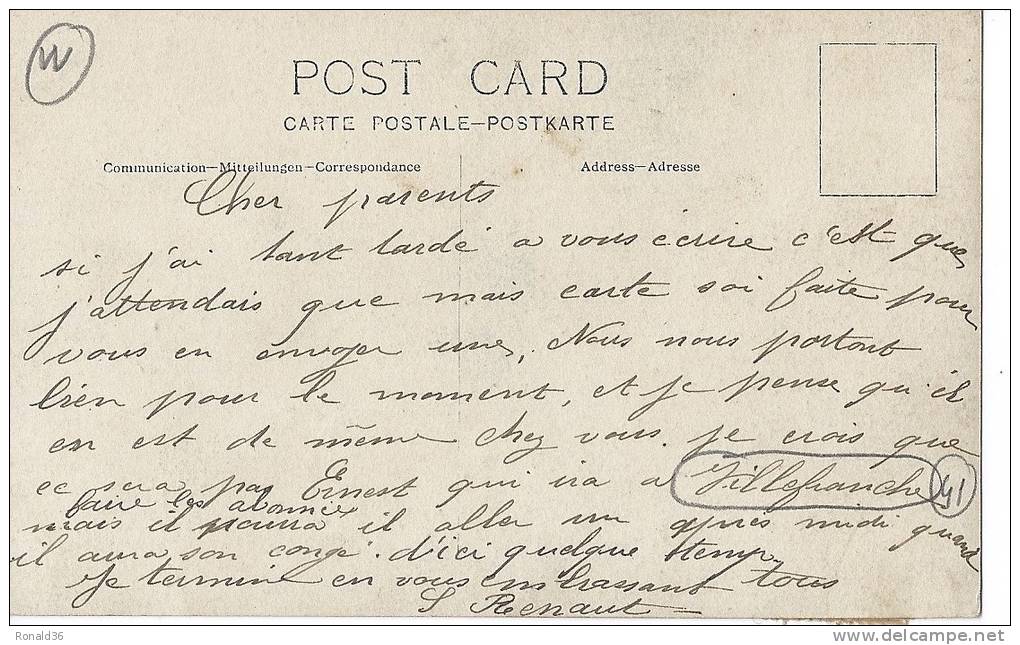 W
POST CARD
CARTE POSTALE—POSTKARTE
Communication—Mitteilungen—Correspondance
Address—Adresse
Cher parents
si j'ai tant tardé a vous écrire c'est que
j'attendais que mais carte soi faite pour
vous en envoyer une, Nous nous portont
bien pour le moment, et je pense qu'il
en est de même chez vous. je crois que
ce sera pas Ernest qui ira a Villefranche 41
faire les
mais il poura il aller un apres midi quand
il aura son congé. d'ici quelque temp
Je termine en vous embrassant tous
S Renaut
Ronald36
www.delcampe.net